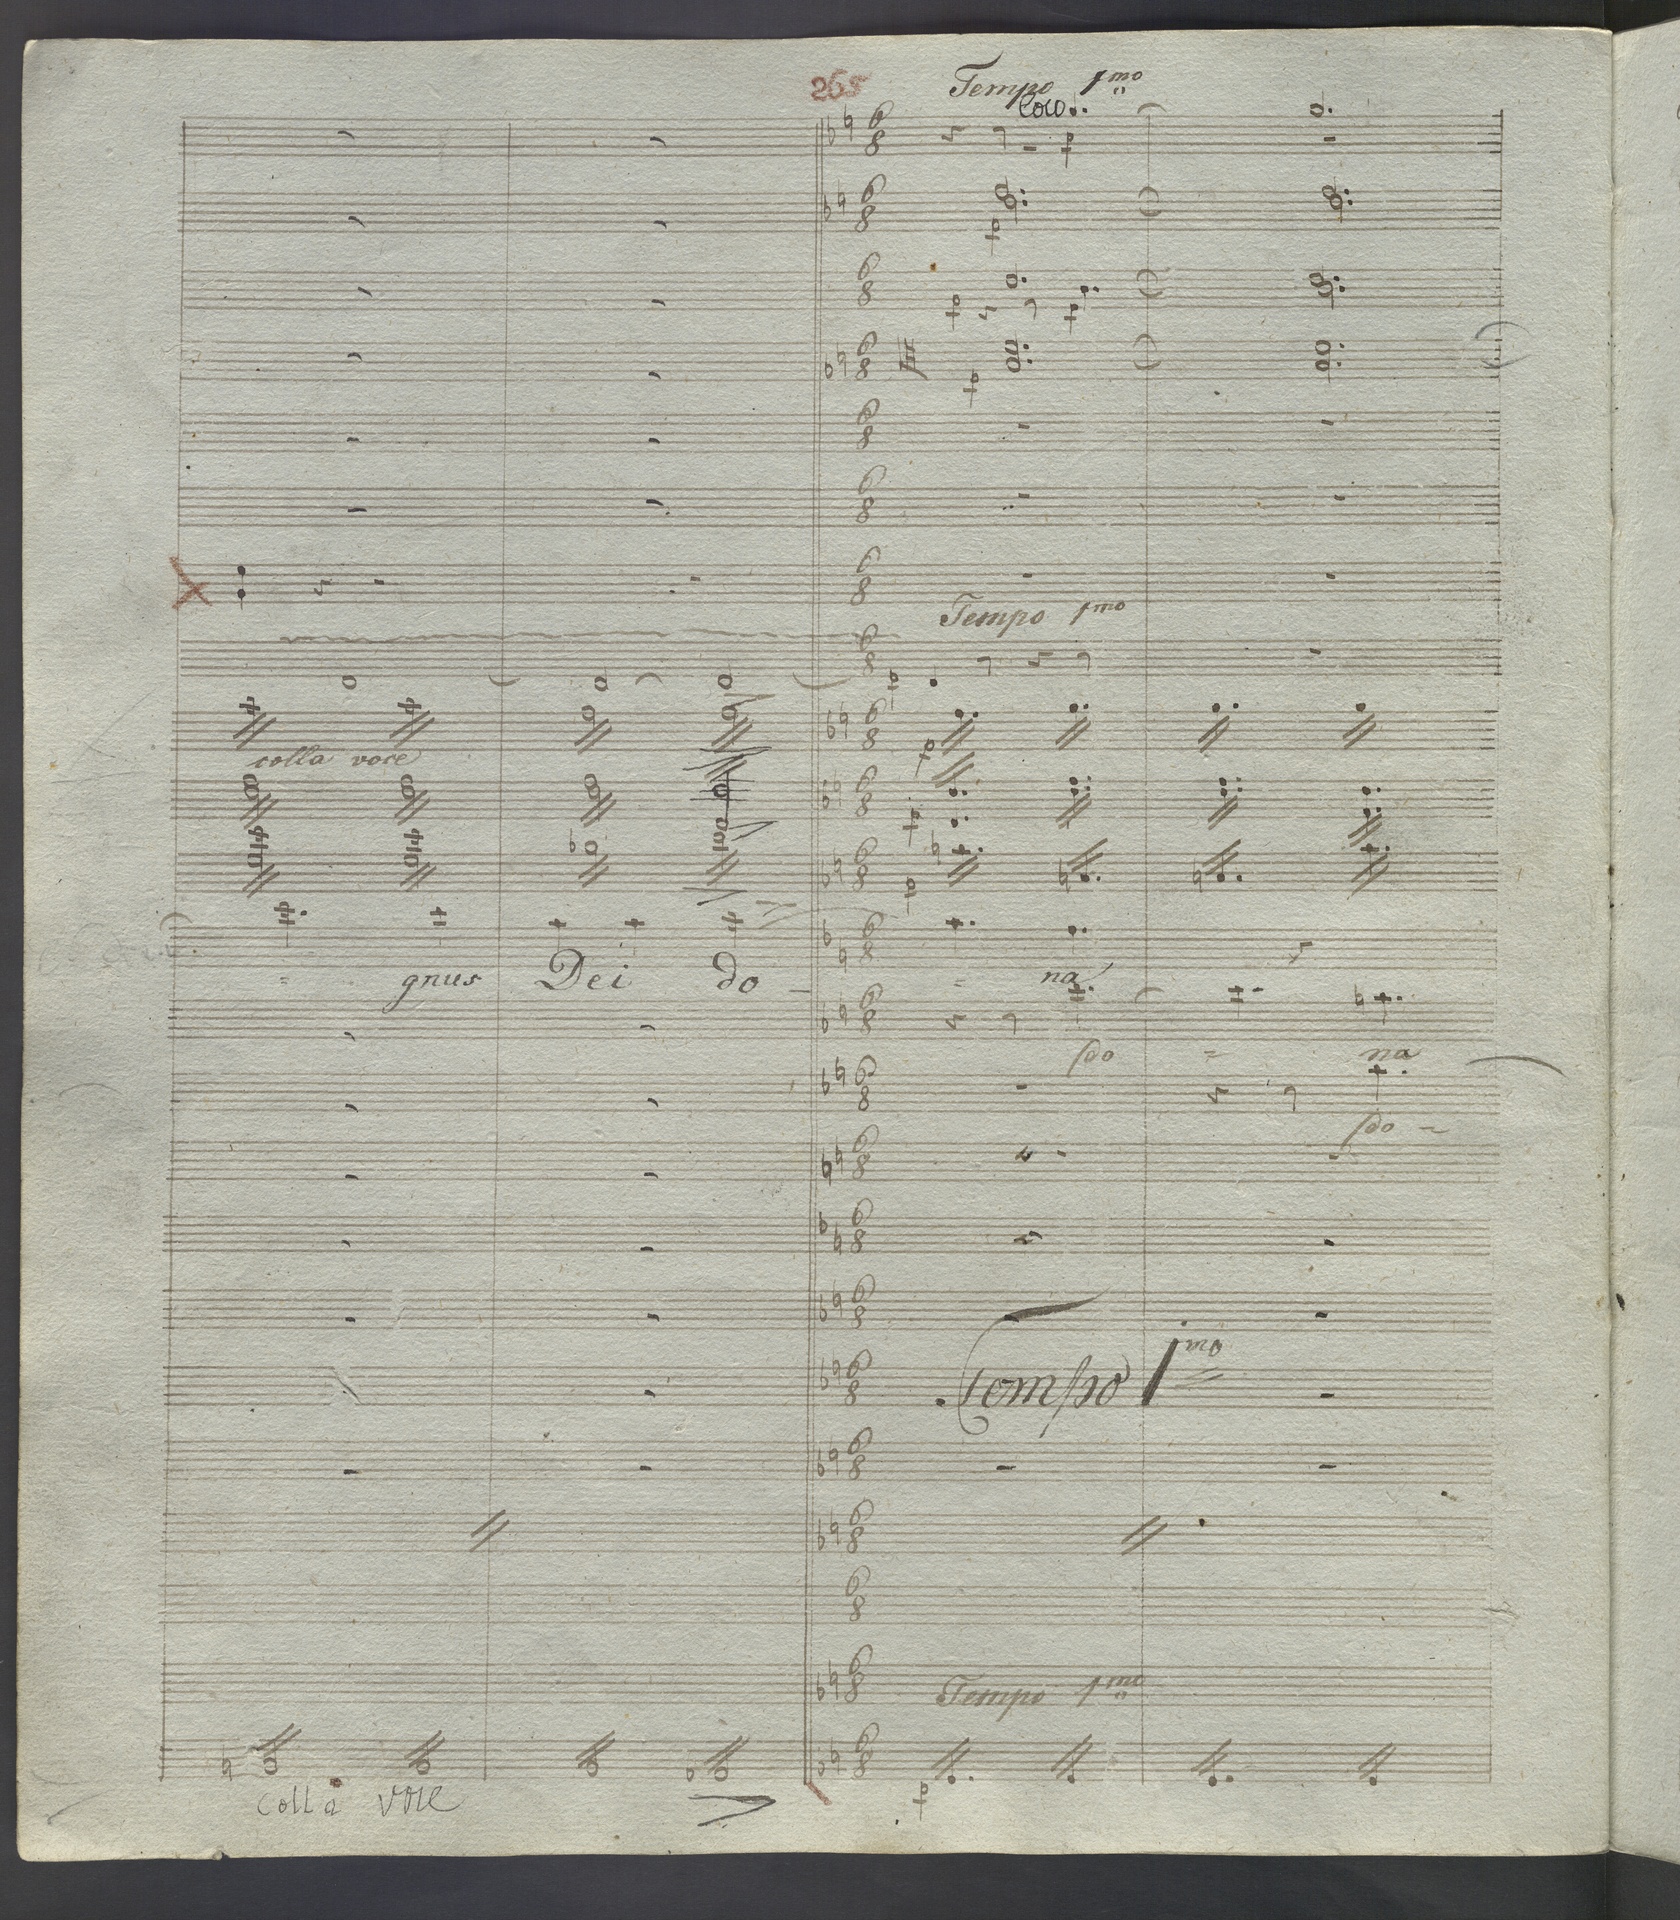 265 Tempo 1mo
loco
Tempo 1mo
colla voce
gnus Dei do - na
do - na
do -
Tempo 1mo
Tempo 1mo
colla voce